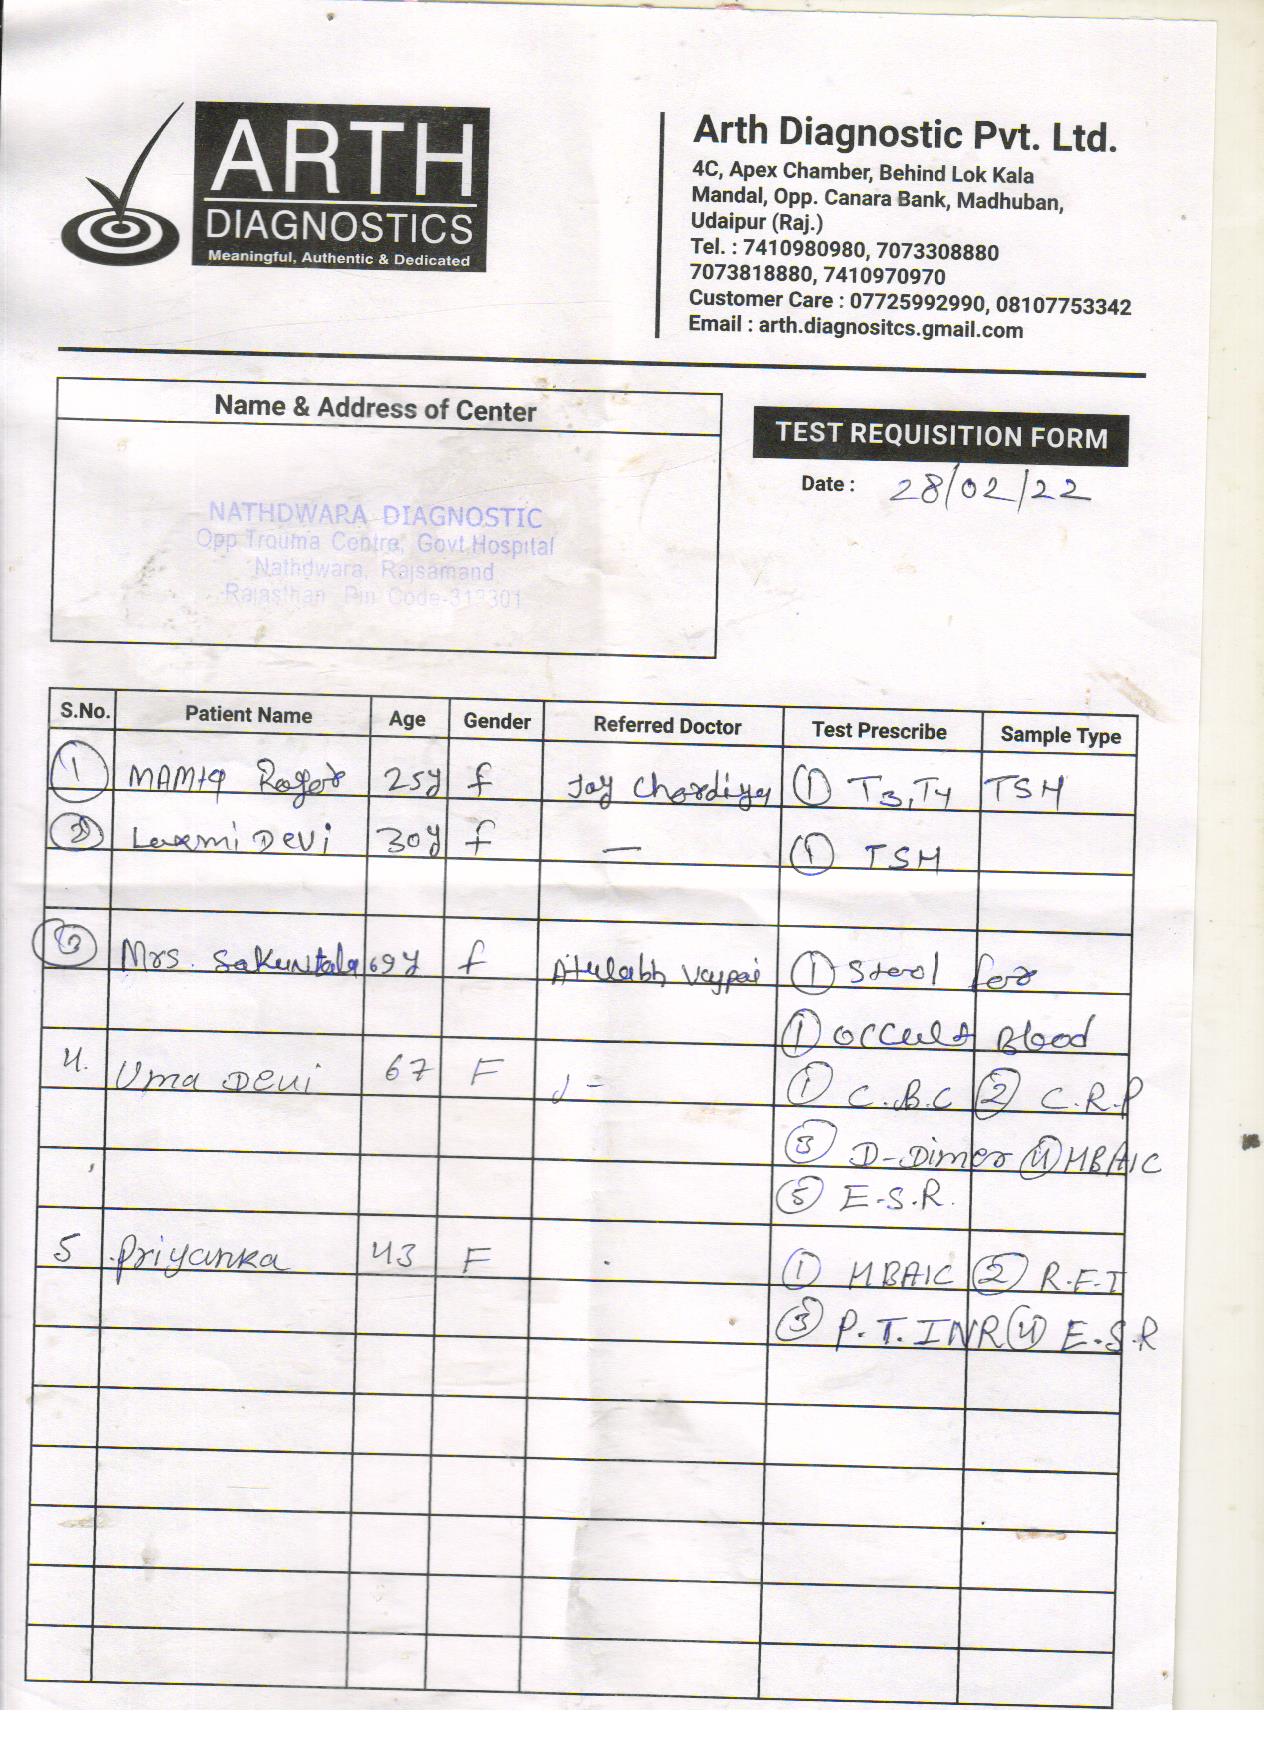 ARTH
DIAGNOSTICS
Meaningful, Authentic & Dedicated
Arth Diagnostic Pvt. Ltd.
4C, Apex Chamber, Behind Lok Kala
Mandal, Opp. Canara Bank, Madhuban,
Udaipur (Raj.)
Tel. : 7410980980, 7073308880
7073818880, 7410970970
Customer Care : 07725992990, 08107753342
Email : arth.diagnositcs.gmail.com
Name & Address of Center
NATHDWARA DIAGNOSTIC
Opp Trauma Centre, Govt Hospital
Nathdwara, Rajsamand
Rajasthan Pin Code-313301
TEST REQUISITION FORM
Date : 28/02/22
S.No. Patient Name Age Gender Referred Doctor Test Prescribe Sample Type
1 25y f Jay Chordiya 1 T3, T4 TSH
2 Laxmi Devi 30y f — 1 TSH
3 Mrs. Sakuntala 69y f 1 Stool for
1 Occult Blood
4. Uma Devi 67 F 1 C.B.C 2 C.R.P
3 D-Dimer 4 HBAIC
5 E.S.R.
5 Priyanka 43 F 1 HBAIC 2
3 P.T. INR 4 E.S.R